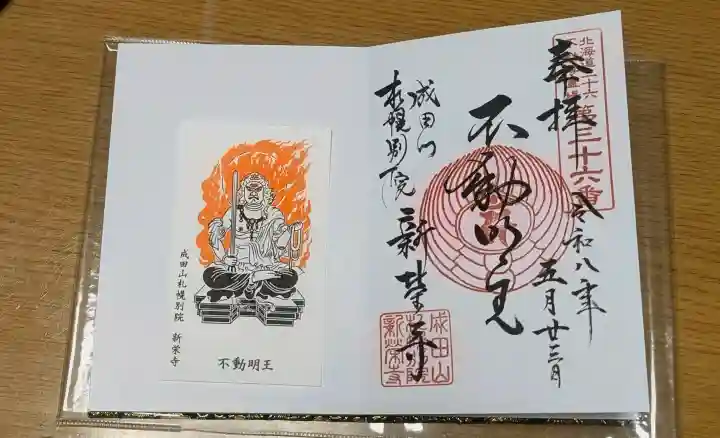 奉拝
北海道三十六
第三十六番
令和八年
五月廿三日
不動明王
成田山
札幌別院
新栄寺
成田山
札幌別院
新榮寺
成田山札幌別院 新栄寺
不動明王